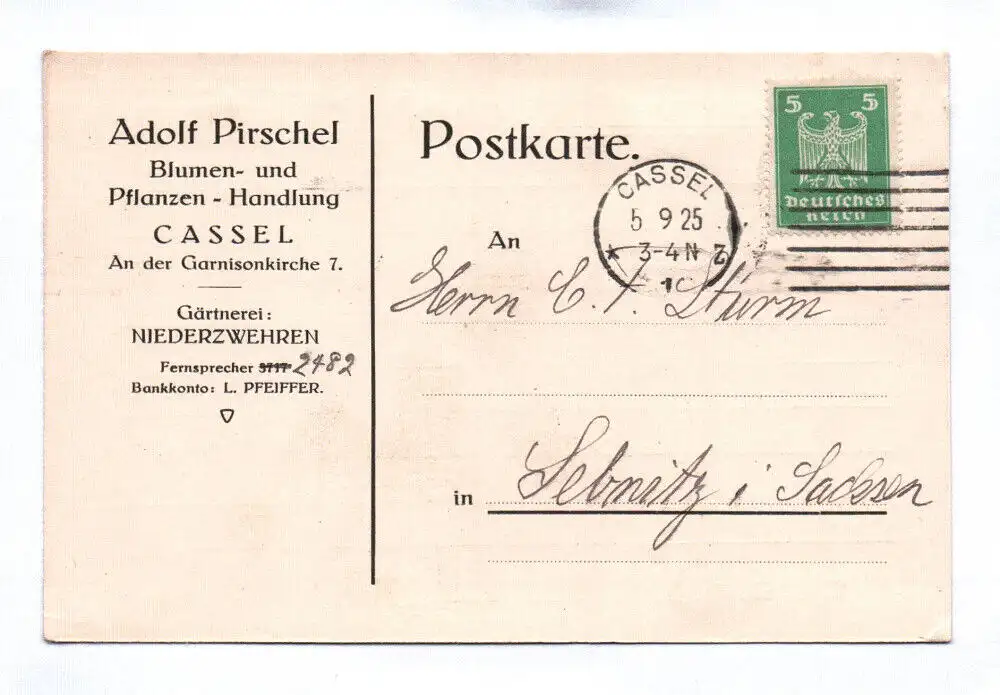 Adolf Pirschel
Blumen- und
Pflanzen - Handlung
CASSEL
An der Garnisonkirche 7.
Gärtnerei:
NIEDERZWEHREN
Fernsprecher 3717 2482
Bankkonto: L. PFEIFFER.
Postkarte.
5 5
Deutsches
Reich
CASSEL
5 9 25
3-4 N
An
Herrn C. Sturm
in Sebnitz i Sachsen